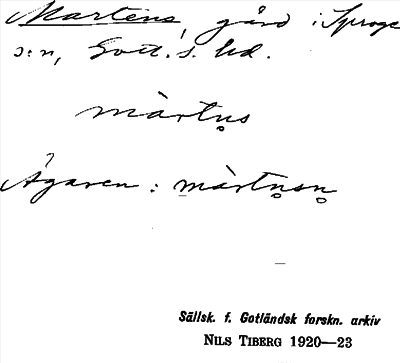 Martens, gård i Sproge
s:n, Gotl. s. hd.
màrtn̥s
Ägaren : màrtn̥sn̥
Sällsk. f. Gotländsk forskn. arkiv
NILS TIBERG 1920—23